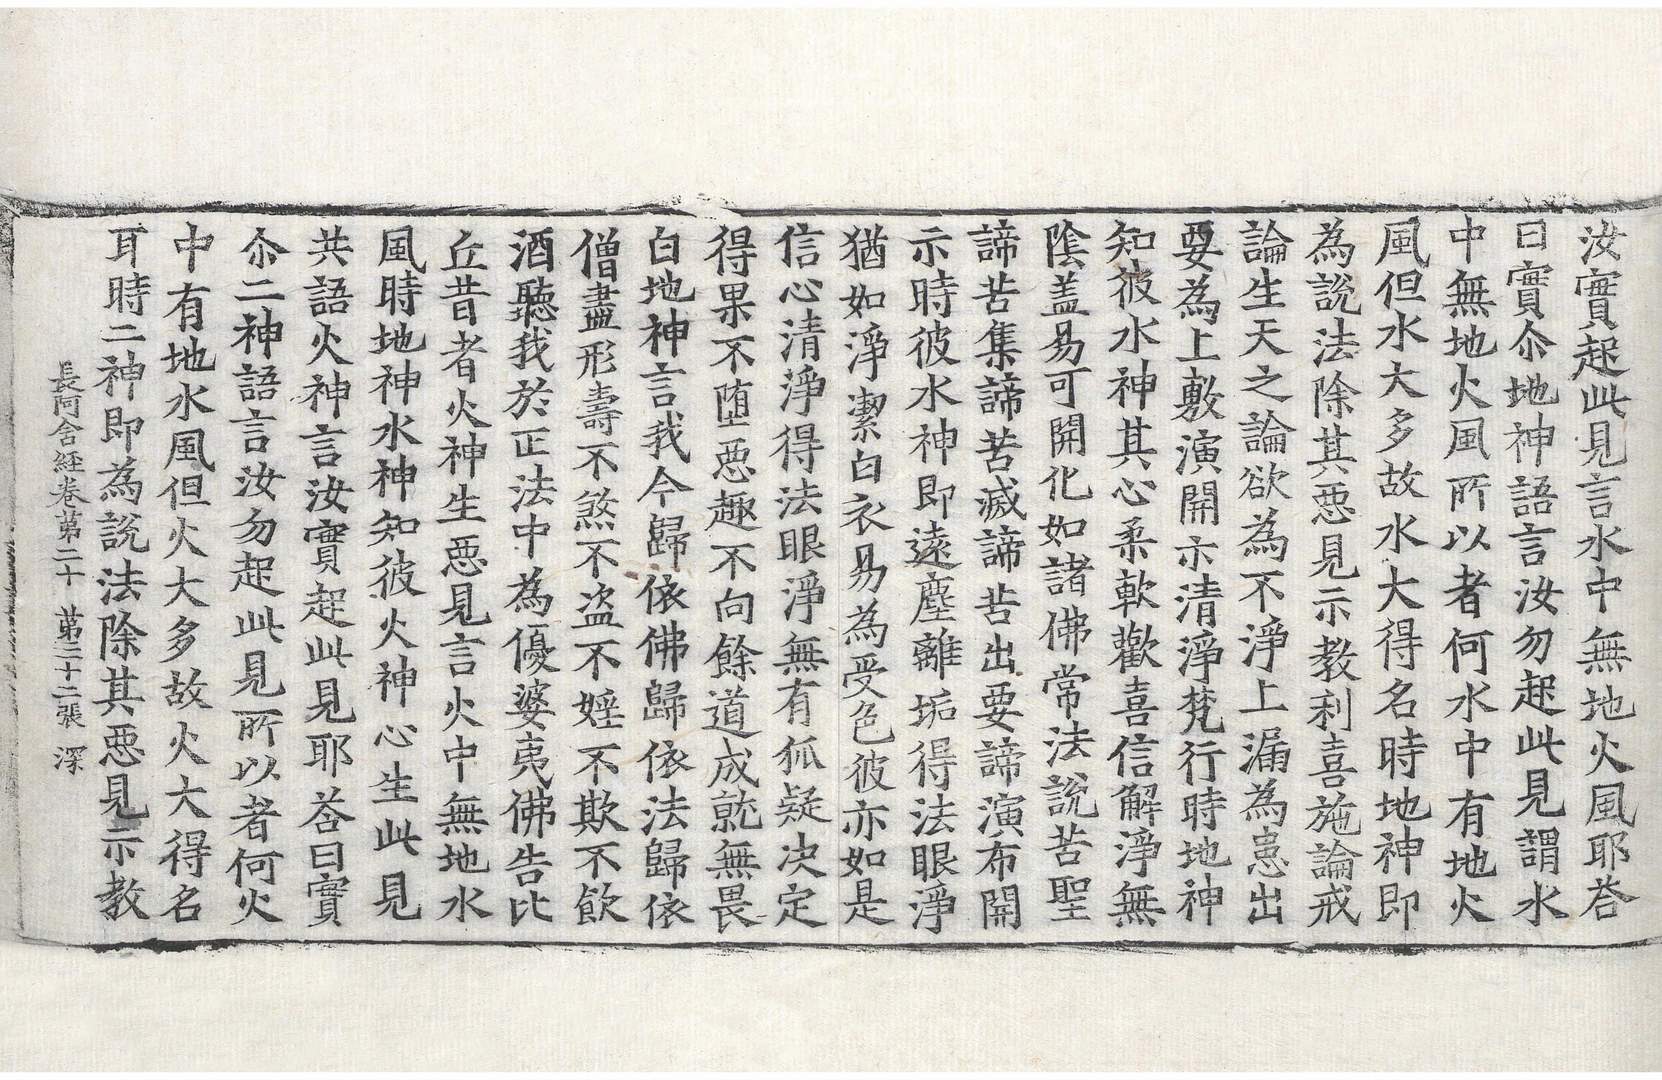 汝實起此見言水中無地火風耶荅
曰實尒地神語言汝勿起此見謂水
中無地火風所以者何水中有地火
風但水大多故水大得名時地神即
為說法除其惡見示教利喜施論戒
論生天之論欲為不淨上漏為患出
要為上敷演開示清淨梵行時地神
知彼水神其心柔軟歡喜信解淨無
陰蓋易可開化如諸佛常法說苦聖
諦苦集諦苦滅諦苦出要諦演布開
示時彼水神即遠塵離垢得法眼淨
猶如淨潔白衣易為受色彼亦如是
信心清淨得法眼淨無有狐疑決定
得果不堕惡趣不向餘道成就無畏
白地神言我今歸依佛歸依法歸依
僧盡形壽不煞不盗不婬不欺不飲
酒聽我於正法中為優婆夷佛告比
丘昔者火神生惡見言火中無地水
風時地神水神知彼火神心生此見
共語火神言汝實起此見耶荅曰實
尒二神語言汝勿起此見所以者何火
中有地水風但火大多故火大得名
耳時二神即為說法除其惡見示教
長阿含経卷苐二十 苐三十二張 深